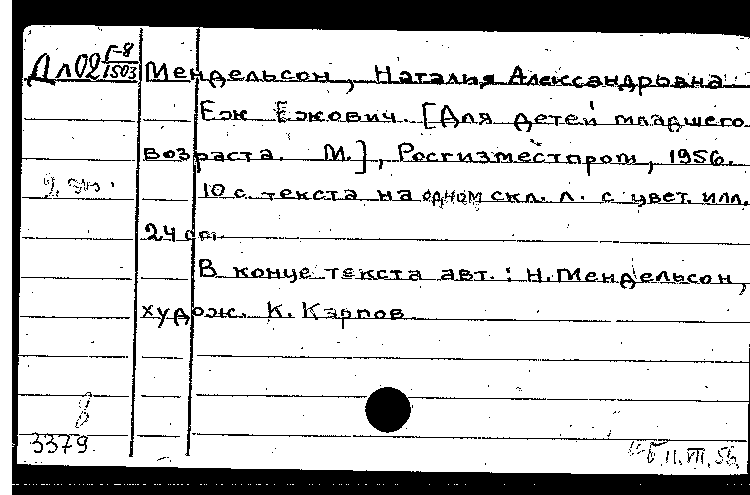 Дл02 Г-8/1503 Мендельсон, Наталья Александровна
Еж Ежович. [Для детей младшего
возраста. М.], Росгизместпром, 1956.
10 с. текста на одном скл. л. с цвет. илл.
24 см.
В конце текста авт.: Н. Мендельсон,
худож. К. Карпов.
3379
11.VII.56